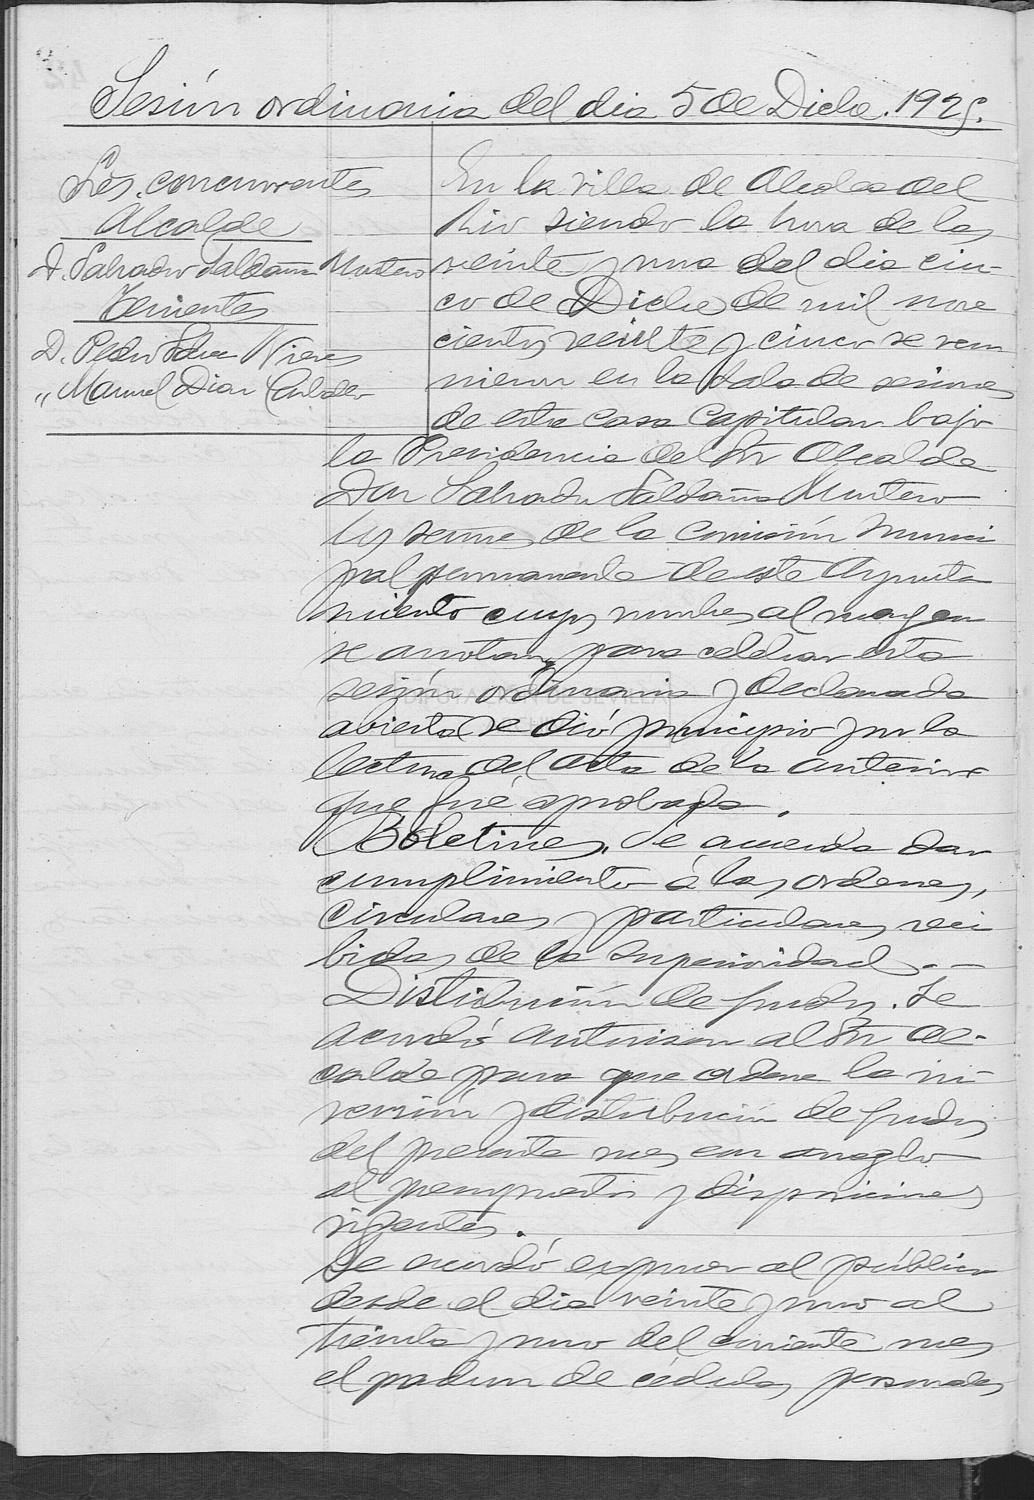 Sesión ordinaria del dia 5 de Dicbe. 1925.
Sres. concurrentes
Alcalde
D. Salvador Saldaña Montero
Tenientes
D. Pedro
„ Manuel Diaz
En la villa de Alcolea del
Rio siendo la hora de las
veinte y una del dia cin-
co de Dicbre de mil nove
cientos veinte y cinco se reu
nieron en la Sala de sesiones
de esta casa Capitular bajo
la Presidencia del Sr Alcalde
Don Salvador Saldaña Montero
los señores de la Comisión Munici
pal permanente de este Ayunta
miento cuyos nombres al margen
se anotan, para celebrar esta
sesión ordinaria y declarada
abierta se dió principio por la
lectura del acta de la anterior
que fué aprobada.
Boletines. Se acuerda dar
cumplimiento á las ordenes,
circulares y particulares reci
bidas de la Superioridad.—
Distribución de fondos. Se
acordó autorizar al Sr Al-
calde para que ordene la in-
versión y distribución de fondos
del presente mes con arreglo
al presupuesto y disposiciones
vigentes.
Se acordó exponer al público
desde el dia veinte y uno al
treinta y uno del corriente mes
el padron de cédulas personales
DIPUTACIÓN DE SEVILLA